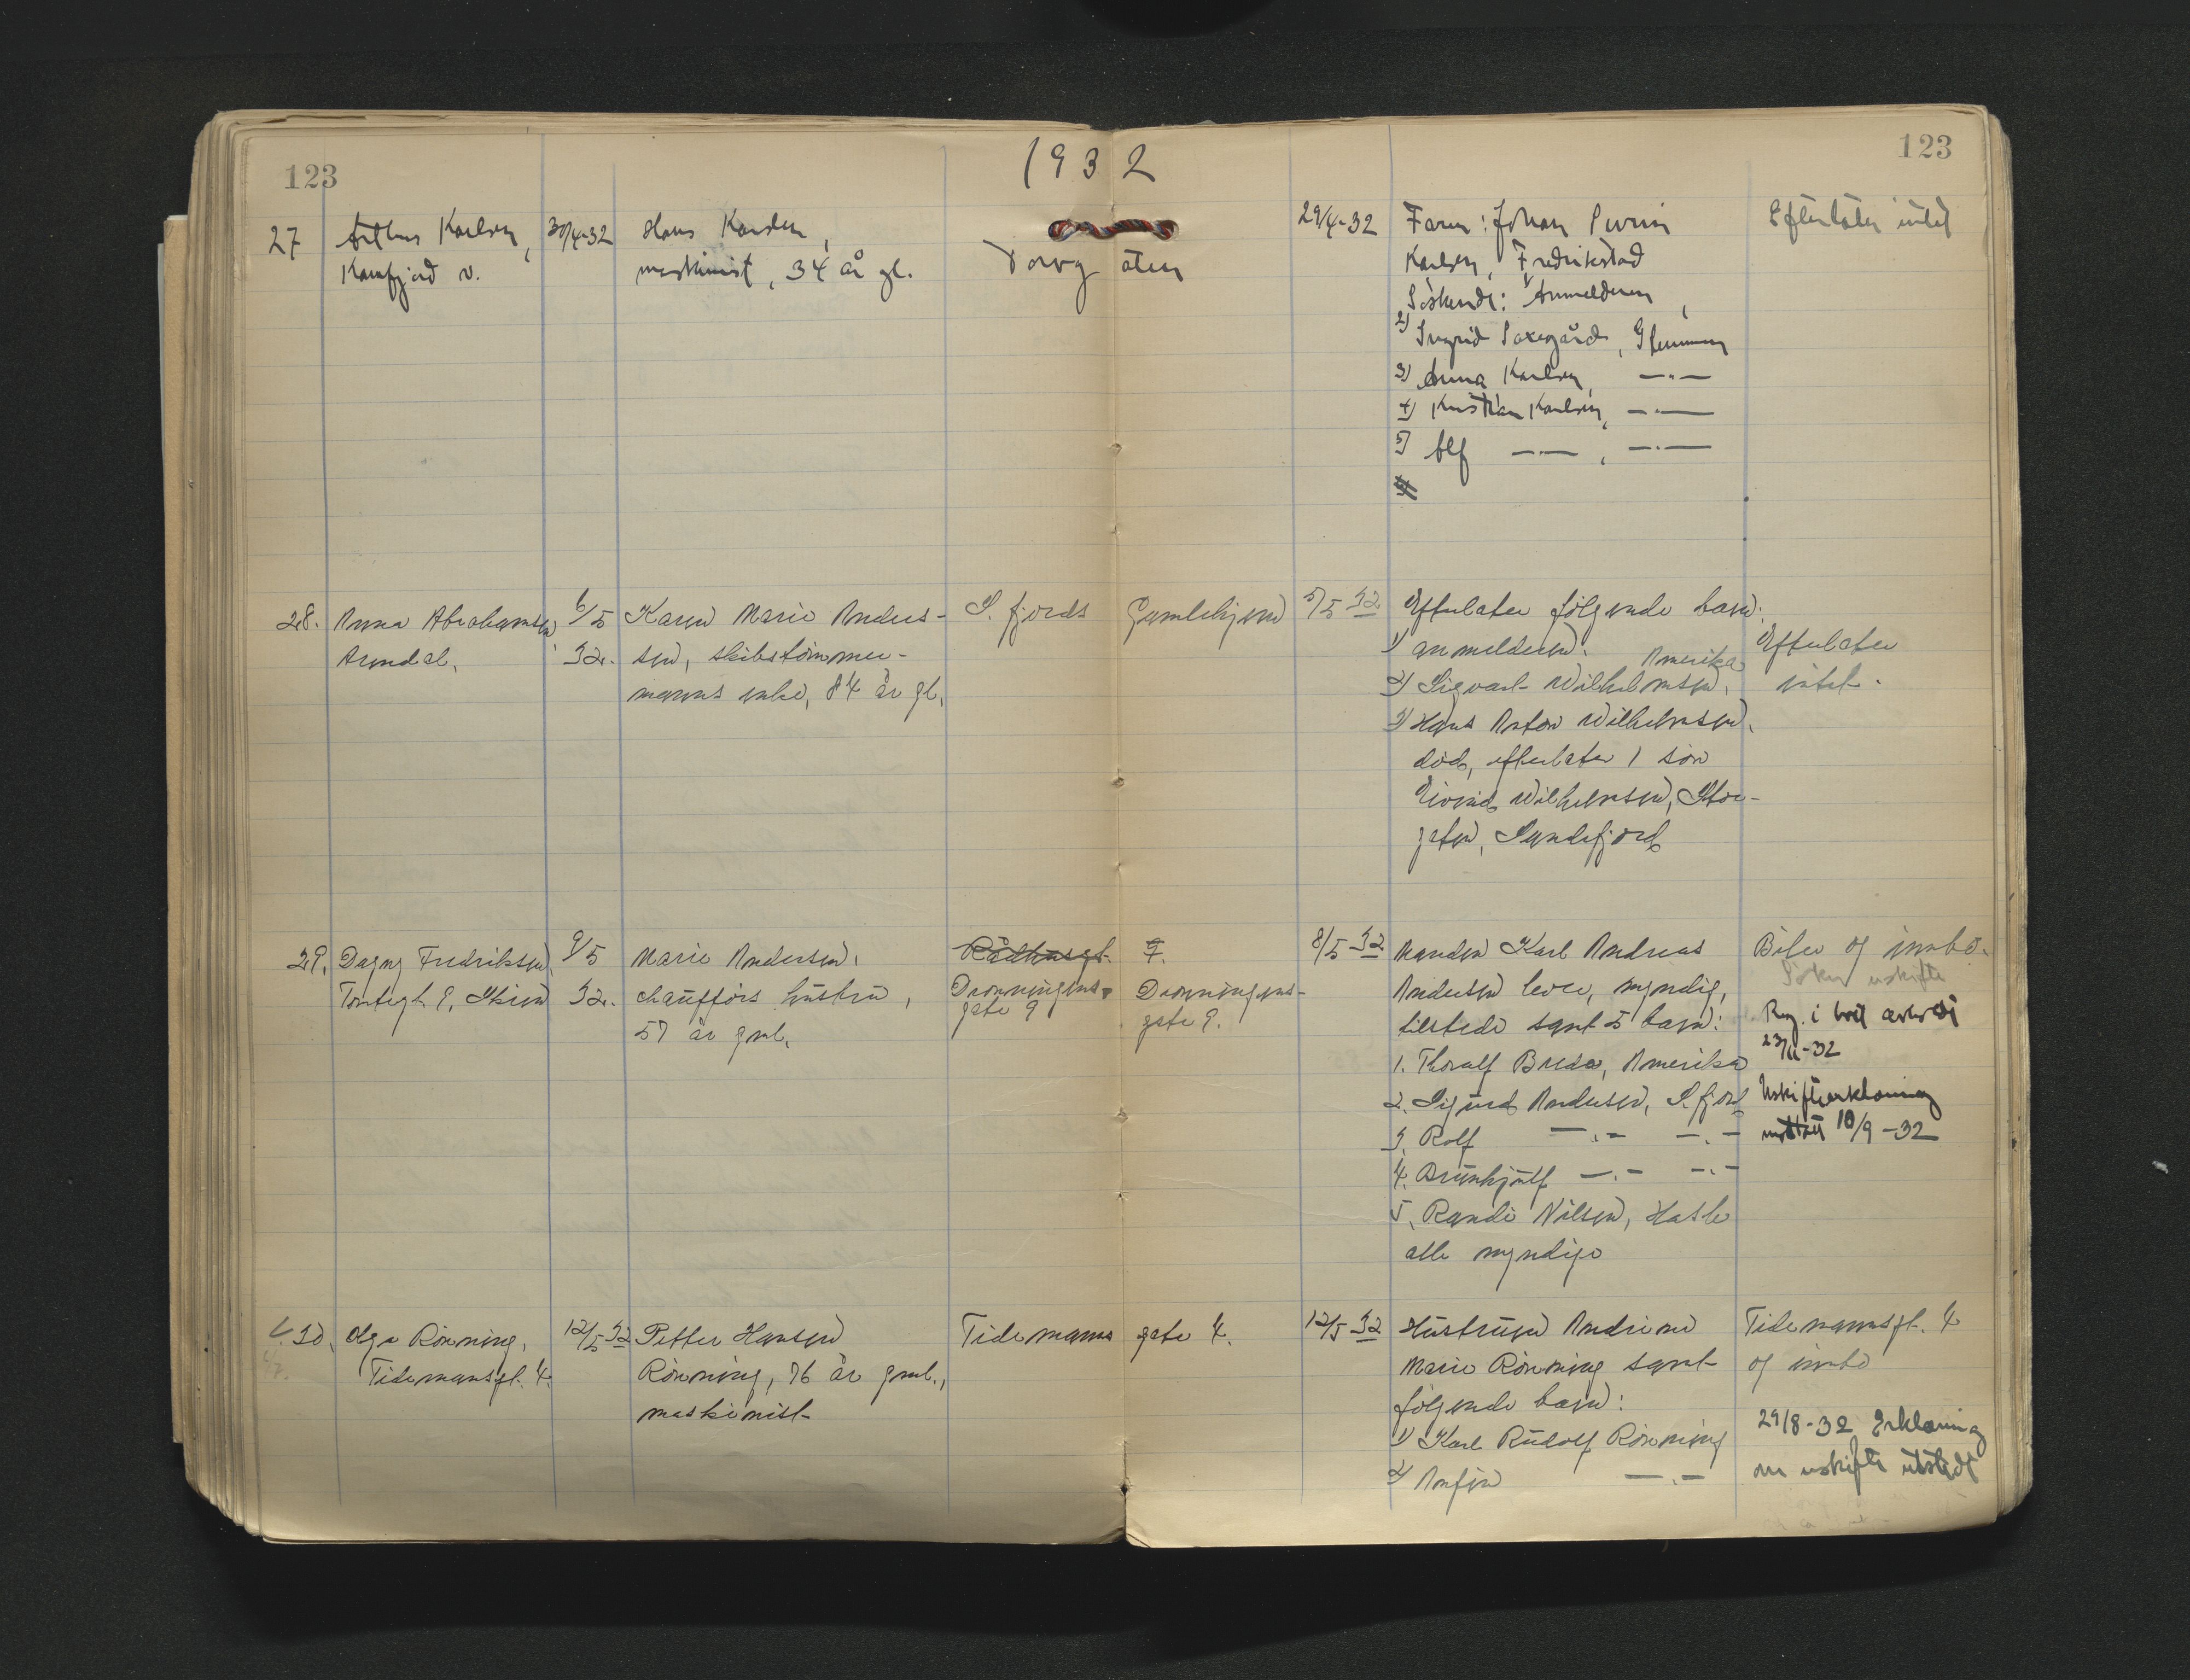 123
1932
123
27
Arthur Karlsen,
Kamfjord v.
30/4-32
Hans Karlsen,
maskinist, 34 år gl.
Torvgaten
29/4-32
Faren: Johan
Karlsen, Fredrikstad
Søskende: 1) Anmelderen,
2) Ingrid Saxegård, Glemmen
3) Anna Karlsen, —„—
4) Kristian Karlsen, —„—
5) Alf —„—, —„—
Efterlater intet
28.
Anna Abrahamsen
Arendal.
6/5
32.
Karen Marie Ander-
sen, skibstømmer-
manns enke, 84 år gl.
S.fjords Gamlehjem
5/5 32
Efterlater følgende barn:
1) anmelderen.
2) Sigvart Wilhelmsen, Amerika
3) Hans Anton Wilhelmsen,
død, efterlater 1 søn
Eivind Wilhelmsen, Stor-
gaten, Sandefjord
Efterlater
intet.
29.
Dagny Fredriksen,
9, Skien
9/5
32.
Marie Andersen,
chaufførs hustru,
57 år gml.
Rådhusgt. 7.
Dronningens-
gate 9
Dronningens-
gate 9.
8/5 32
Manden Karl Andreas
Andersen lever, myndig,
tilstede samt 5 barn:
1. Thoralf Breda, Amerika
2. Sigurd Andersen, S.fjord
3. Rolf —„— —„—
4. Brynhjulf —„— —„—
5. Randi Nilsen, Hasle
alle myndige
Biler og innbo.
Søker uskifte
Reg. i
23/11-32
Uskifteerklæring
mottatt 10/9-32
30.
Olga Rønning,
Tidemansgt. 4.
12/5 32
Petter Hansen
Rønning, 76 år gml.,
maskinist
Tidemanns gate 4.
12/5 32
Hustruen Andrine
Marie Rønning samt
følgende barn:
1) Karl Rudolf Rønning
2) Anfin —„—
Tidemannsgt. 4
og innbo
29/8-32 Erklæring
om uskifte utstedt